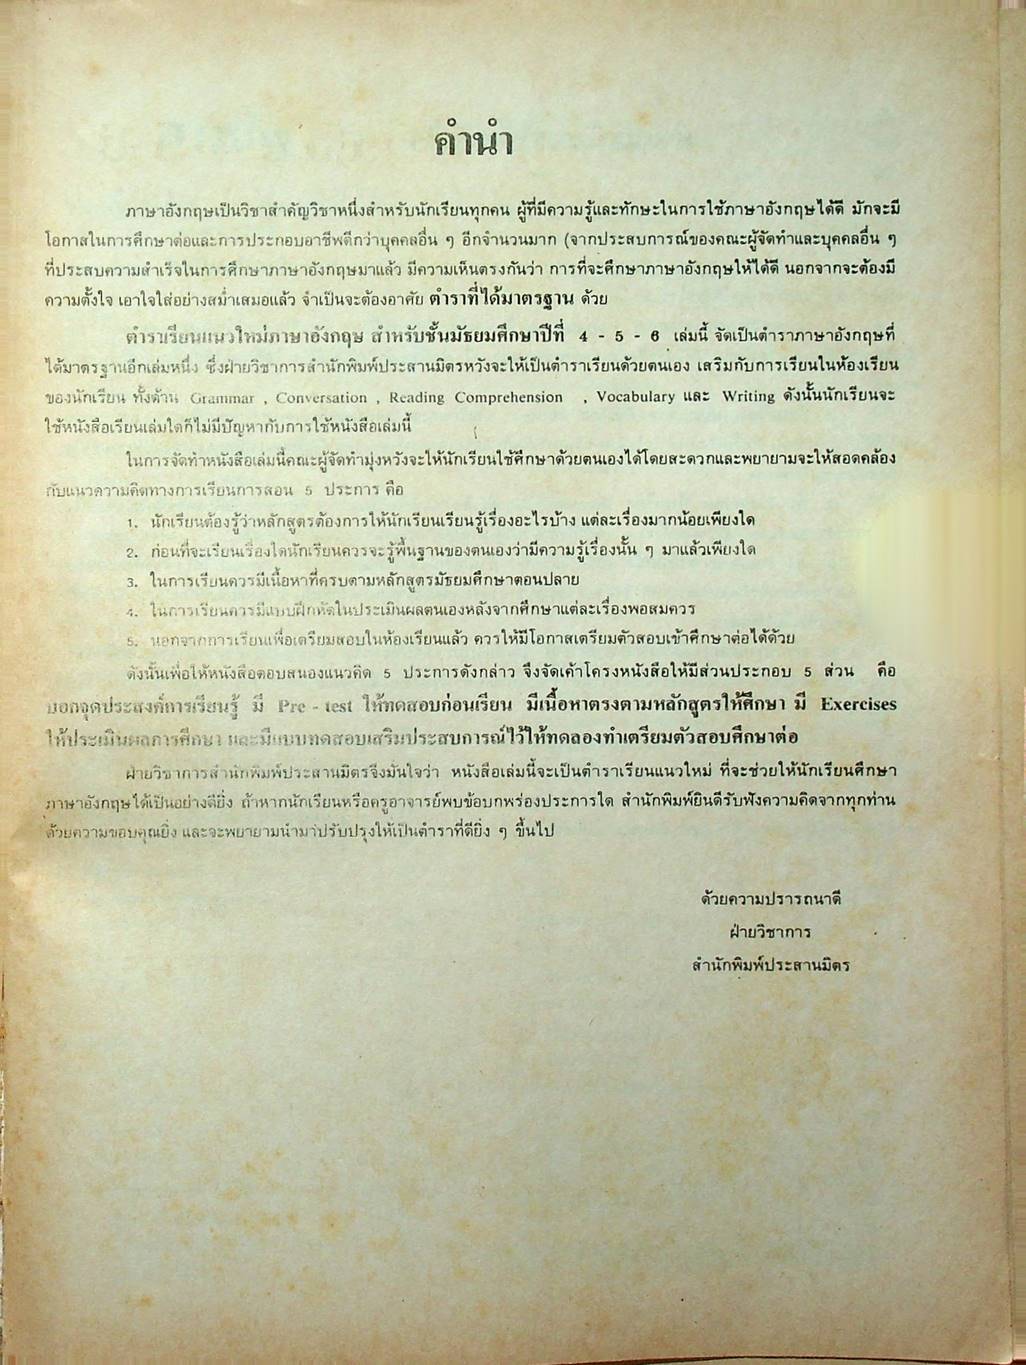 คำนำ
ภาษาอังกฤษเป็นวิชาสำคัญวิชาหนึ่งสำหรับนักเรียนทุกคน ผู้ที่มีความรู้และทักษะในการใช้ภาษาอังกฤษได้ดี มักจะมี
โอกาสในการศึกษาต่อและการประกอบอาชีพดีกว่าบุคคลอื่น ๆ อีกจำนวนมาก (จากประสบการณ์ของคณะผู้จัดทำและบุคคลอื่น ๆ
ที่ประสบความสำเร็จในการศึกษาภาษาอังกฤษมาแล้ว มีความเห็นตรงกันว่า การที่จะศึกษาภาษาอังกฤษให้ได้ดี นอกจากจะต้องมี
ความตั้งใจ เอาใจใส่อย่างสม่ำเสมอแล้ว จำเป็นจะต้องอาศัย ตำราที่ได้มาตรฐาน ด้วย
ตำราเรียนแนวใหม่ภาษาอังกฤษ สำหรับชั้นมัธยมศึกษาปีที่ 4 - 5 - 6 เล่มนี้ จัดเป็นตำราภาษาอังกฤษที่
ได้มาตรฐานอีกเล่มหนึ่ง ซึ่งฝ่ายวิชาการสำนักพิมพ์ประสานมิตรหวังจะให้เป็นตำราเรียนด้วยตนเอง เสริมกับการเรียนในห้องเรียน
ของนักเรียน ทั้งด้าน Grammar , Conversation , Reading Comprehension , Vocabulary และ Writing ดังนั้นนักเรียนจะ
ใช้หนังสือเรียนเล่มใดก็ไม่มีปัญหากับการใช้หนังสือเล่มนี้
ในการจัดทำหนังสือเล่มนี้คณะผู้จัดทำมุ่งหวังจะให้นักเรียนใช้ศึกษาด้วยตนเองได้โดยสะดวกและพยายามจะให้สอดคล้อง
กับแนวความคิดทางการเรียนการสอน 5 ประการ คือ
1. นักเรียนต้องรู้ว่าหลักสูตรต้องการให้นักเรียนเรียนรู้เรื่องอะไรบ้าง แต่ละเรื่องมากน้อยเพียงใด
2. ก่อนที่จะเรียนเรื่องใดนักเรียนควรจะรู้พื้นฐานของตนเองว่ามีความรู้เรื่องนั้น ๆ มาแล้วเพียงใด
3. ในการเรียนควรมีเนื้อหาที่ครบตามหลักสูตรมัธยมศึกษาตอนปลาย
4. ในการเรียนควรมีแบบฝึกหัดในประเมินผลตนเองหลังจากศึกษาแต่ละเรื่องพอสมควร
5. นอกจากการเรียนเพื่อเตรียมสอบในห้องเรียนแล้ว ควรให้มีโอกาสเตรียมตัวสอบเข้าศึกษาต่อได้ด้วย
ดังนั้นเพื่อให้หนังสือตอบสนองแนวคิด 5 ประการดังกล่าว จึงจัดเค้าโครงหนังสือให้มีส่วนประกอบ 5 ส่วน คือ
บอกจุดประสงค์การเรียนรู้ มี Pre - test ให้ทดสอบก่อนเรียน มีเนื้อหาตรงตามหลักสูตรให้ศึกษา มี Exercises
ให้ประเมินผลการศึกษา และมีแบบทดสอบเสริมประสบการณ์ไว้ให้ทดลองทำเตรียมตัวสอบศึกษาต่อ
ฝ่ายวิชาการสำนักพิมพ์ประสานมิตรจึงมั่นใจว่า หนังสือเล่มนี้จะเป็นตำราเรียนแนวใหม่ ที่จะช่วยให้นักเรียนศึกษา
ภาษาอังกฤษได้เป็นอย่างดียิ่ง ถ้าหากนักเรียนหรือครูอาจารย์พบข้อบกพร่องประการใด สำนักพิมพ์ยินดีรับฟังความคิดจากทุกท่าน
ด้วยความขอบคุณยิ่ง และจะพยายามนำมาปรับปรุงให้เป็นตำราที่ดียิ่ง ๆ ขึ้นไป
ด้วยความปรารถนาดี
ฝ่ายวิชาการ
สำนักพิมพ์ประสานมิตร